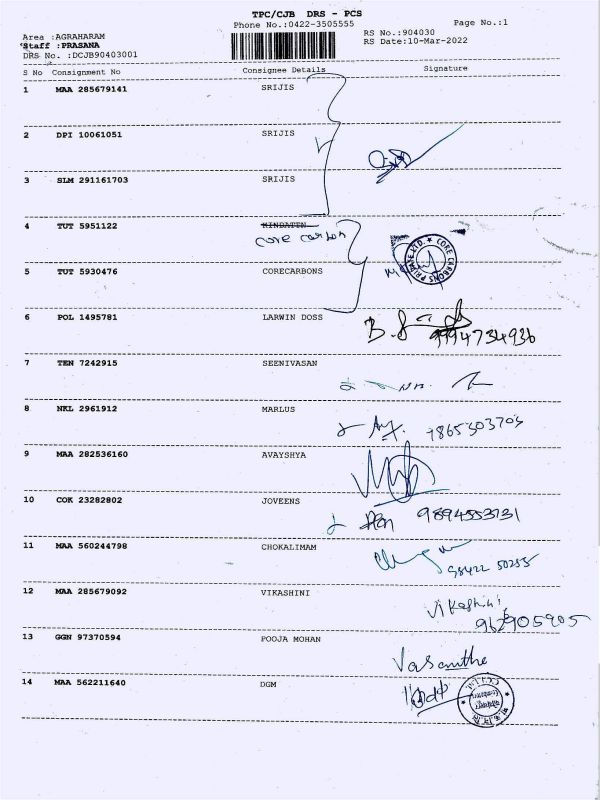 TPC/CJB DRS - PCS
Phone No.:0422-3505555 Page No.:1
Area :AGRAHARAM RS No.:904030
Staff :PRASANA RS Date:10-Mar-2022
DRS No. :DCJB90403001
S No Consignment No Consignee Details Signature
1 MAA 285679141 SRIJIS
2 DPI 10061051 SRIJIS
3 SLM 291161703 SRIJIS
4 TUT 5951122
core carbon
CORE CARBONS PRIVATE LTD.
5 TUT 5930476 CORECARBONS
6 POL 1495781 LARWIN DOSS
9994734936
7 TEN 7242915 SEENIVASAN
8 NKL 2961912 MARLUS
9 MAA 282536160 AVAYSHYA
10 COK 23282802 JOVEENS
9894553731
11 MAA 560244798 CHOKALIMAM
98422 50255
12 MAA 285679092 VIKASHINI
Vikashini
13 GGN 97370594 POOJA MOHAN
Vasanthe
14 MAA 562211640 DGM